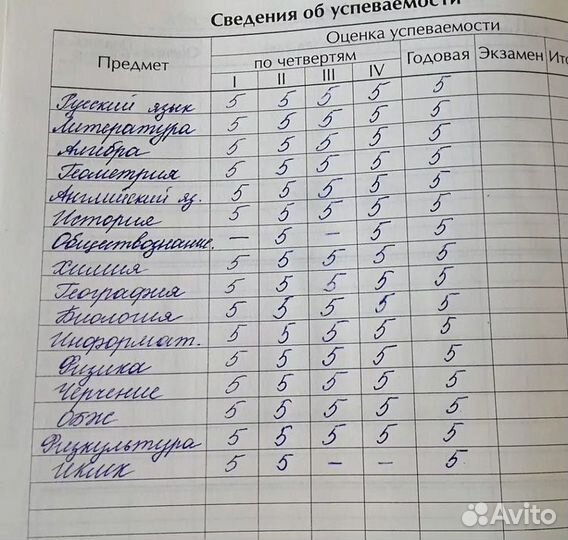 Сведения об успеваемости
Предмет Оценка успеваемости
по четвертям Годовая Экзамен Ито
I II III IV
Русский язык 5 5 5 5 5
Литература 5 5 5 5 5
Алгебра 5 5 5 5 5
Геометрия 5 5 5 5 5
Английский яз. 5 5 5 5 5
История 5 5 5 5 5
Обществознание. – 5 – 5 5
Химия 5 5 5 5 5
География 5 5 5 5 5
Биология 5 5 5 5 5
Информат. 5 5 5 5 5
Физика 5 5 5 5 5
Черчение 5 5 5 5 5
ОБЖ 5 5 5 5 5
Физкультура 5 5 5 5 5
ИКМК 5 5 – – 5
Avito